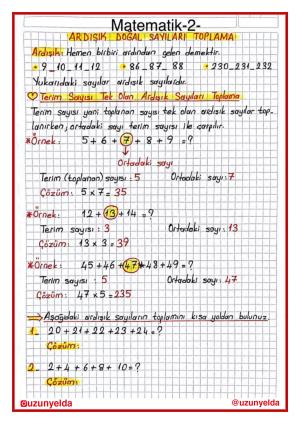 Matematik-2-
ARDIŞIK DOĞAL SAYILARI TOPLAMA
Ardışık: Hemen birbiri ardından gelen demektir.
• 9_10_11_12 • 86_87_88 • 230_231_232
Yukarıdaki sayılar ardışık sayılardır.
Terim Sayısı Tek Olan Ardışık Sayıları Toplama
Terim sayısı yani toplanan sayısı tek olan ardışık sayılar top-
lanırken; ortadaki sayı terim sayısı ile çarpılır.
*Örnek: 5 + 6 + 7 + 8 + 9 = ?
Ortadaki sayı
Terim (toplanan) sayısı: 5 Ortadaki sayı: 7
Çözüm: 5 x 7 = 35
*Örnek: 12 + 13 + 14 = ?
Terim sayısı: 3 Ortadaki sayı: 13
Çözüm: 13 x 3 = 39
*Örnek: 45 + 46 + 47 + 48 + 49 = ?
Terim sayısı: 5 Ortadaki sayı: 47
Çözüm: 47 x 5 = 235
Aşağıdaki ardışık sayıların toplamını kısa yoldan bulunuz.
1_ 20 + 21 + 22 + 23 + 24 = ?
Çözüm:
2_ 2 + 4 + 6 + 8 + 10 = ?
Çözüm:
@uzunyelda @uzunyelda